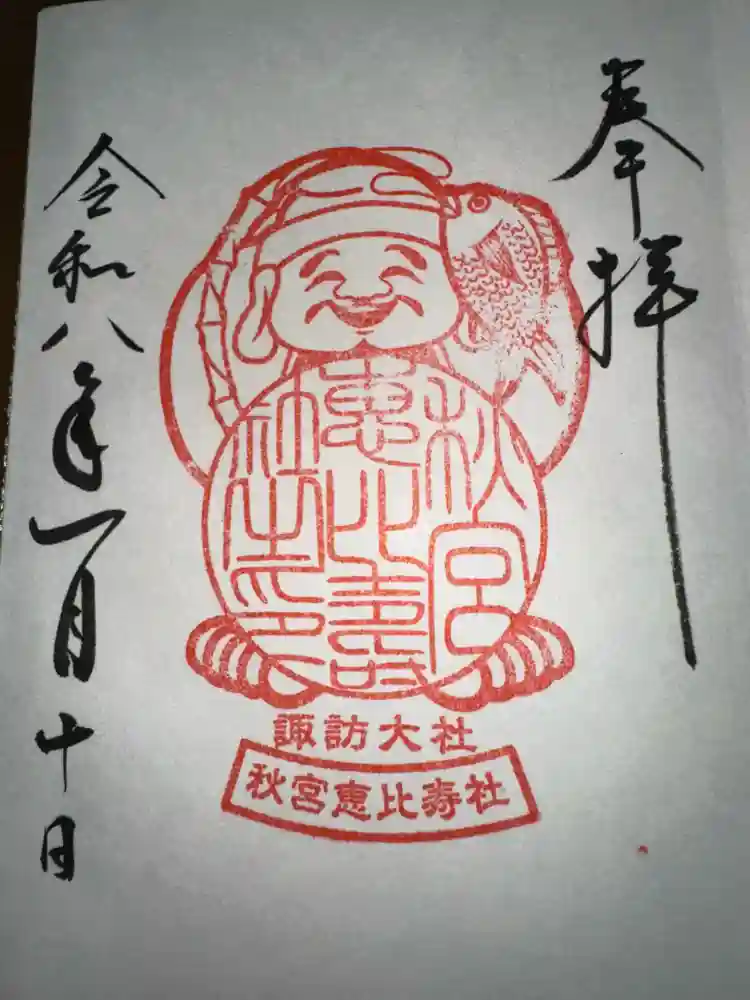 奉拝
秋宮
恵比壽
社之印
諏訪大社
秋宮恵比寿社
令和八年一月十日